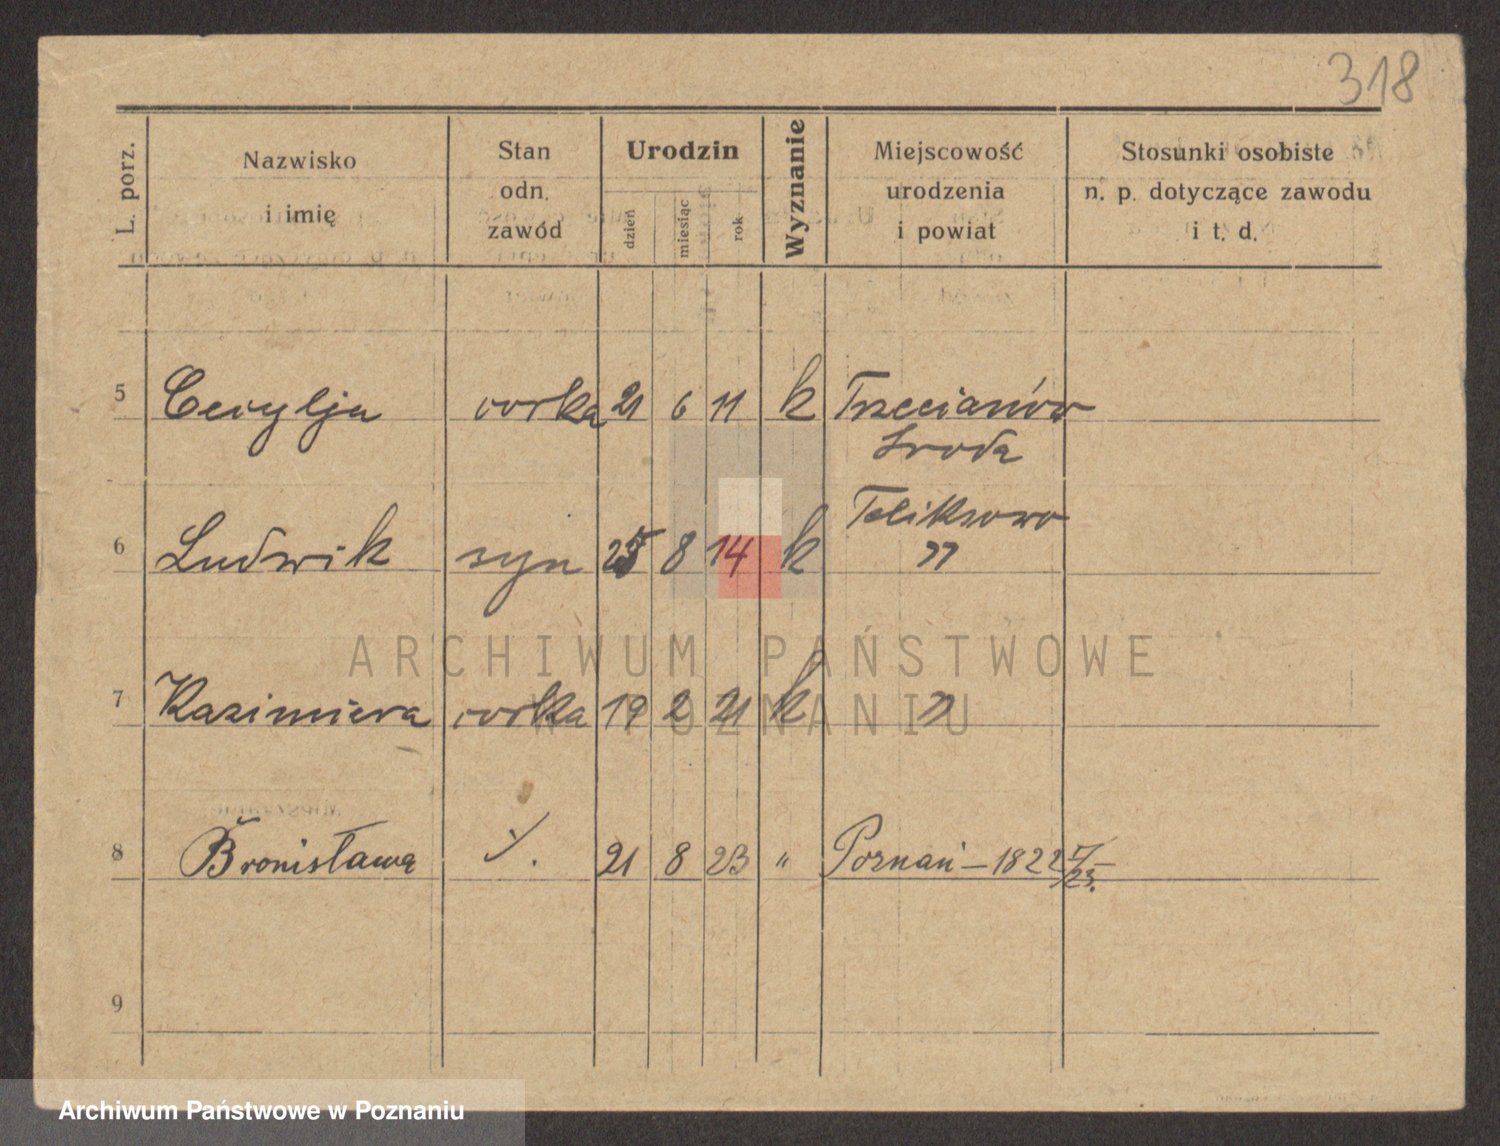 318
L. porz.
Nazwisko i imię
Stan odn. zawód
Urodzin
dzień miesiąc rok
Wyznanie
Miejscowość urodzenia i powiat
Stosunki osobiste n. p. dotyczące zawodu i t. d.
5 Cecylja corka 21 6 11 k Trzecianów
Sroda
Feliksowo
6 Ludwik syn 25 8 14 k "
7 Kazimiera corka 19 2 21 k "
8 Bronisława ·/. 21 8 23 " Poznań – 1822 V/23.
9
ARCHIWUM PAŃSTWOWE
W POZNANIU
Archiwum Państwowe w Poznaniu